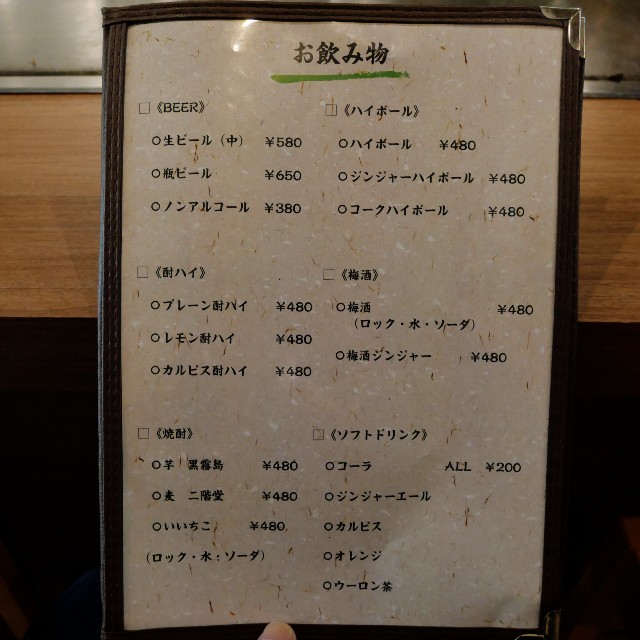 お飲み物
□《BEER》
○生ビール（中） ￥580
○瓶ビール ￥650
○ノンアルコール ￥380
□《ハイボール》
○ハイボール ￥480
○ジンジャーハイボール ￥480
○コークハイボール ￥480
□《酎ハイ》
○プレーン酎ハイ ￥480
○レモン酎ハイ ￥480
○カルピス酎ハイ ￥480
□《梅酒》
○梅酒 ￥480
（ロック・水・ソーダ）
○梅酒ジンジャー ￥480
□《焼酎》
○芋 黒霧島 ￥480
○麦 二階堂 ￥480
○いいちこ ￥480
（ロック・水：ソーダ）
□《ソフトドリンク》
○コーラ ALL ￥200
○ジンジャーエール
○カルピス
○オレンジ
○ウーロン茶